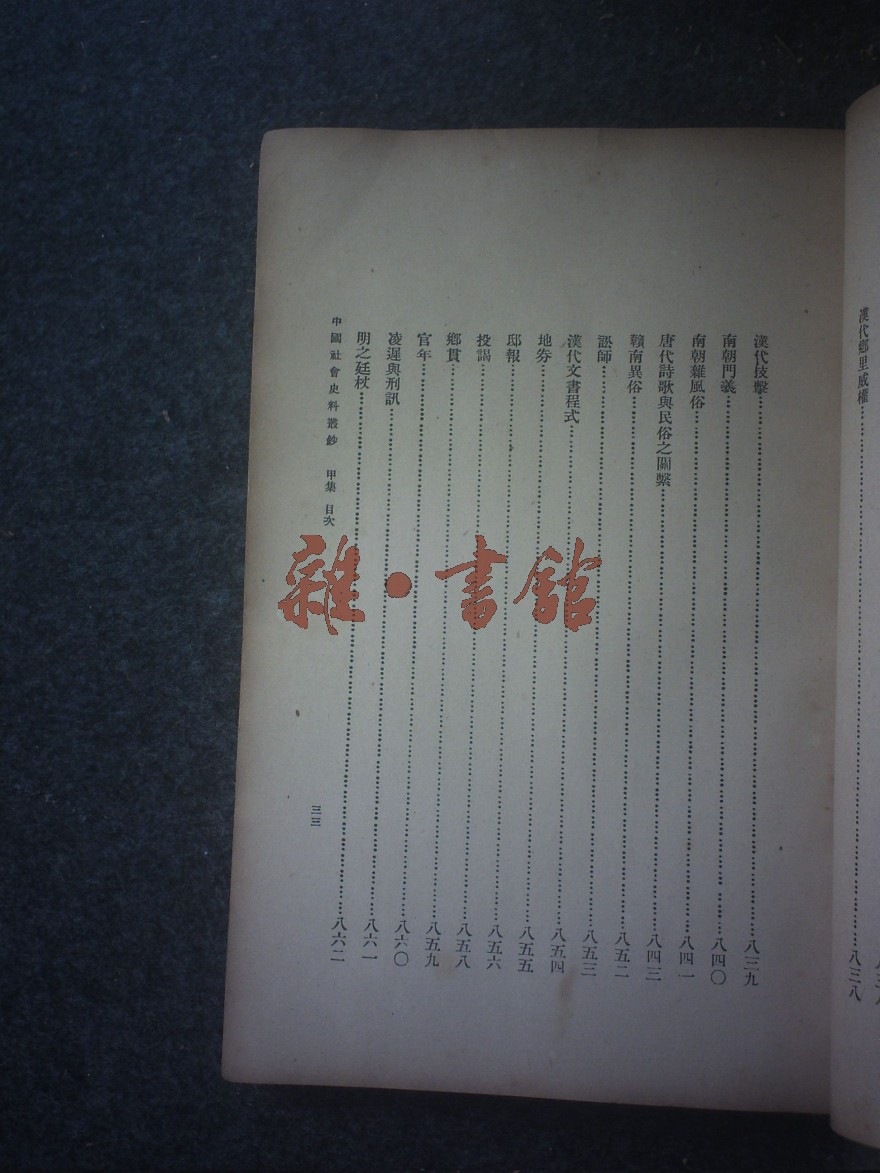 漢代鄉里威權……八三八
漢代技擊……八三九
南朝門義……八四〇
南朝雜風俗……八四一
唐代詩歌與民俗之關繫……八四三
贛南異俗……八五二
訟師……八五三
漢代文書程式……八五四
地券……八五五
邸報……八五六
投謁……八五八
鄉貫……八五九
官年……八六〇
凌遲與刑訊……八六一
明之廷杖……八六二
中國社會史料叢鈔 甲集 目次 三三
雜·書館